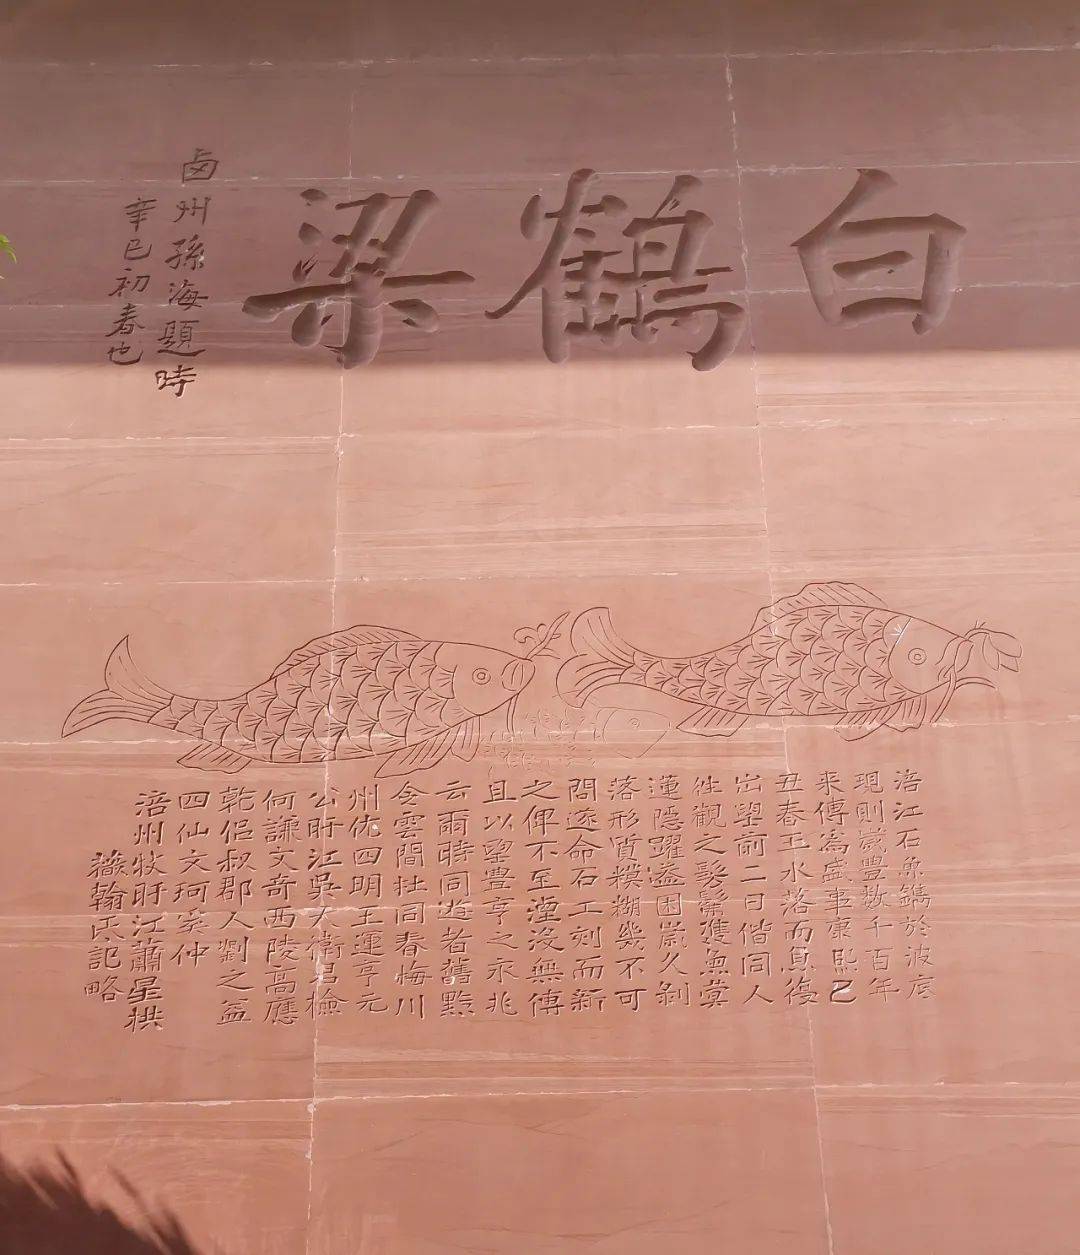 白鶴梁
卤州孫海題時
辛巳初春也
涪江石魚鐫於波底
現則歲豐數千百年
来傳為盛事康熙己
丑春王水落而息復
出望前二日偕同人
往觀之髣髴雙魚蓂
蓮隱躍溢困歲久剝
落形質模糊幾不可
問遂命石工刻而新
之俾不至湮沒無傳
且以望豐亨之永兆
云爾時同遊者舊黔
令雲間杜同春悔川
州佐四明王運亨元
公盱江吳大衛昌檢
何謙文奇西陵高應
乾侶叔郡人劉之益
四仙文珂奚仲
涪州牧盱江蕭星拱
薇翰氏記略